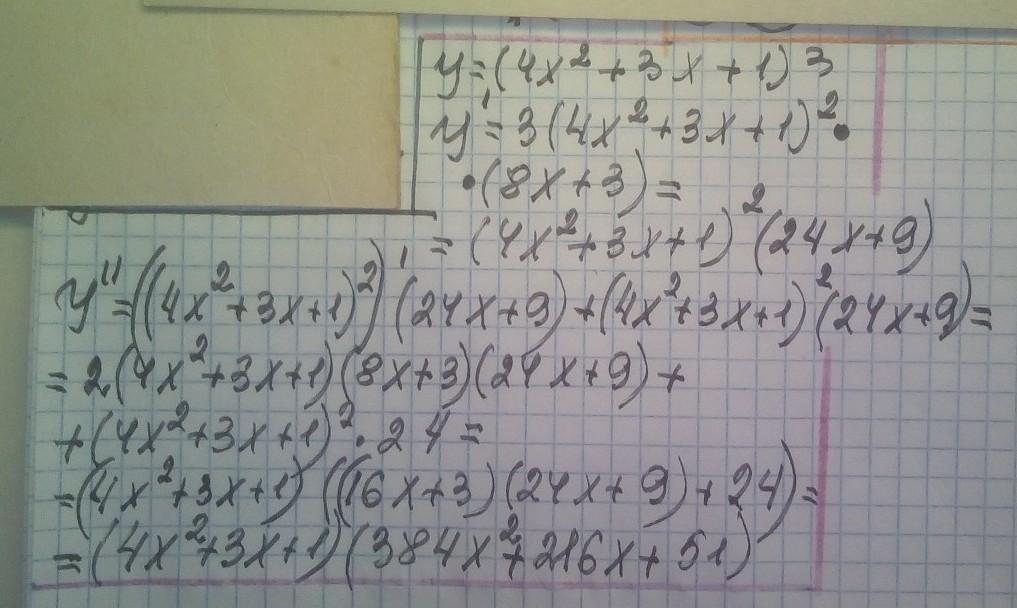 y=(4x²+3x+1)3
y'=3(4x²+3x+1)²•
•(8x+3)=
=(4x²+3x+1)²(24x+9)
y''=((4x²+3x+1)²)'(24x+9)+(4x²+3x+1)²(24x+9)=
=2(4x²+3x+1)(8x+3)(24x+9)+
+(4x²+3x+1)²•24=
=(4x²+3x+1)((16x+3)(24x+9)+24)=
=(4x²+3x+1)(384x²+216x+51)